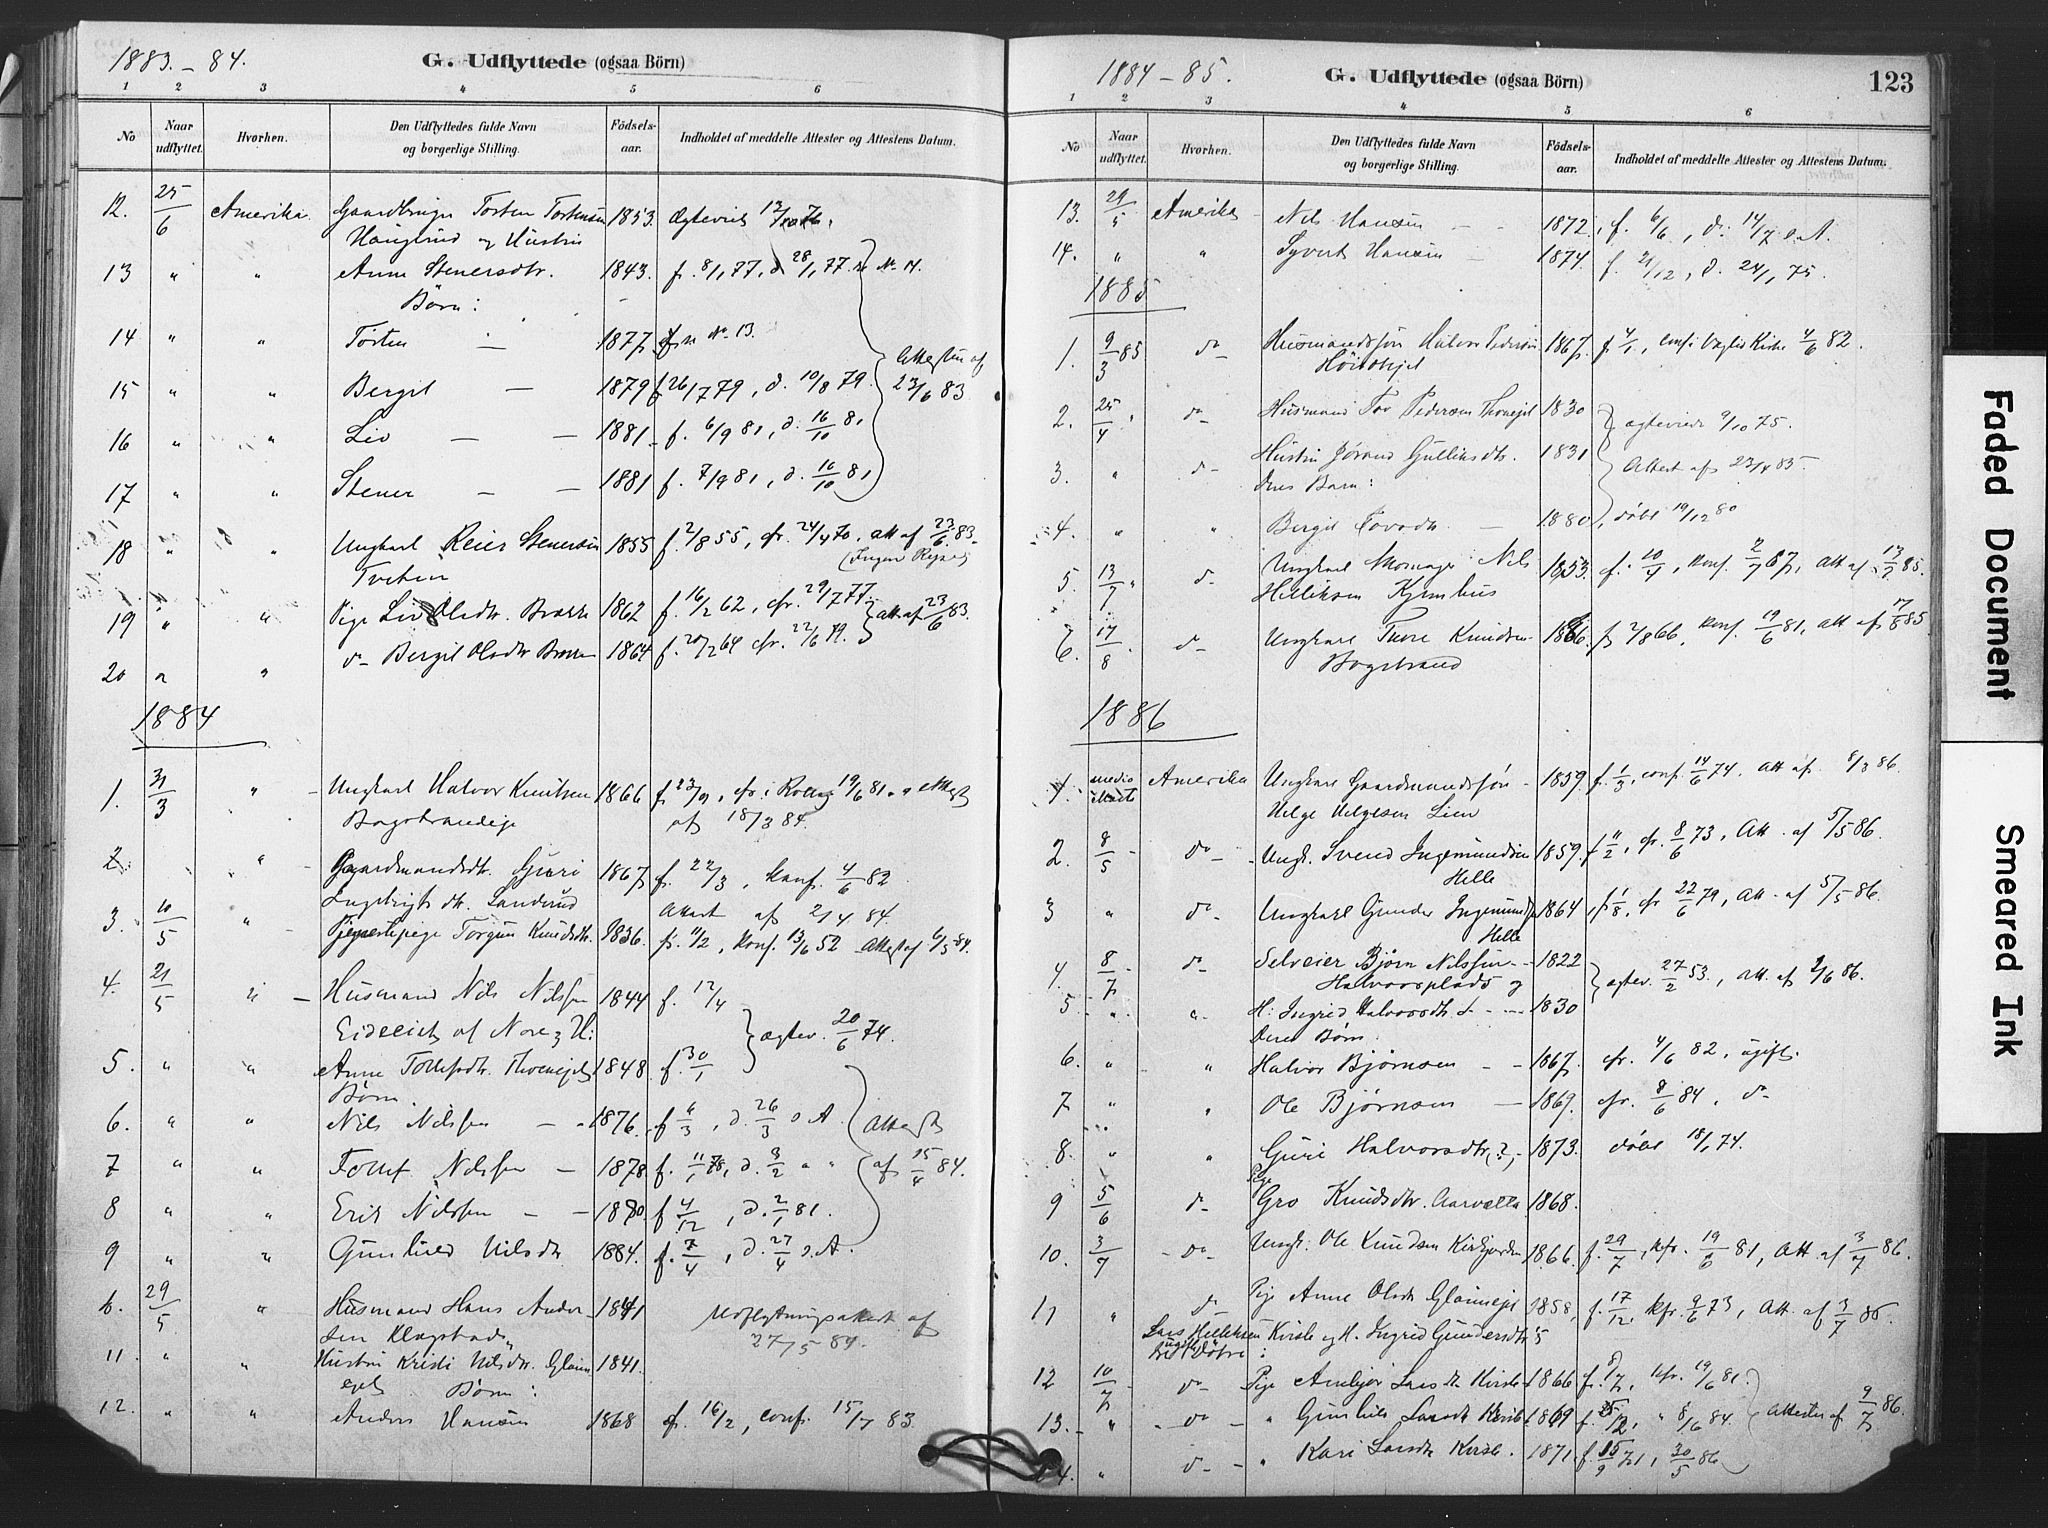 1883.-84.
G. Udflyttede (ogsaa Börn)
1 2 3 4 5 6
No
Naar udflyttet.
Hvorhen.
Den Udflyttedes fulde Navn og borgerlige Stilling.
Födsels-aar.
Indholdet af meddelte Attester og Attestens Datum.
12. 25/6 Amerika. Torsten Torstensen 1853. Ægteviet
Haugerud og Hustru
13 " " Anne Stenersdtr. 1843. f. 8/1 77, d 28/1 77. No 14.
Börn:
14 " " Torsten — 1877 No 13.
15 " " Bergit — 1879 f 26/7 79, d. 10/8 79. Attesten af
23/6 83
16 " " Liv — — 1881 f. 6/9 81, d. 16/10 81
17 " " Stener — — 1881 f. 7/9 81, d. 16/10 81
18 " " Ungkarl Reier Stenersen 1855 f. 2/8 55, cfr. 24/4 70, att af 23/6 83.
Tveten
19 " " Pige Liv Olsdtr. 1862 f. 16/2 62, cfr. 29/7 77. att. af 23/6 83.
20 " " do Bergit Olsdtr 1864 f. 20/2 64 cfr. 22/6 79.
1884
1. 31/3 " Ungkarl Halvor Knutsen 1866 f 23/9, cfr. i 19/6 81. Attest
af 18/3 84.
2. " Gaardmandsdtr. Guri 1867 f. 22/3, Konf. 4/6 82
Ingebrigts dtr. Attest af 2/4 84
3. 10/5 " Torgun Knudsdtr. 1836. f. 11/2, Konf. 13/6 52 Attest af 6/5 84.
4. 21/5 " — Husmand Nils Nilssen 1844 f. 12/4
af Nore og H: ægtev. 20/6 74.
5. " " Anne 1848 f. 30/1
Börn.
6. " " Nils Nilssen — 1876. f 6/3, d. 26/3 s. A. Attest
7 " " Nilssen — 1878. f. 11/1 78, d. 3/2 " " af 15/4 84.
8 " " Erik Nilssen — — 1880. f 4/12, d. 2/1 81.
9 " " Gunhild Nilsdtr 1884. f. 7/4, d. 27/4 s. A.
29/5 " Husmand Hans Ander- 1841 Udflytningsattest af
sen Klagstad 27/5 84.
11. " " Hustru Kristi Nilsdtr. 1841.
Börn:
12. " " Anders Hansen 1868 f. 16/2, conf. 15/7 83
1884-85.
G. Udflyttede (ogsaa Börn)
123
1 2 3 4 5 6
No
Naar udflyttet.
Hvorhen.
Den Udflyttedes fulde Navn og borgerlige Stilling.
Födsels-aar.
Indholdet af meddelte Attester og Attestens Datum.
13. 29/5 Amerika Nils Hansen — — 1872. f. 6/6, d. 14/7 s. A.
14. " " Syvert Hansen — 1874. f. 21/12, d. 24/1 75.
1885
1. 9/3 85 do Husmandssön Halvor Pedersen 1867. f. 4/1, conf. i Kirke 4/6 82.
2. 25/4 " do Husmand Tov Pedersen 1830 ægteviede 9/10 75.
3. " do Hustru Jørand Gulliksdtr. 1831 Attest af 23/4 85.
Deres Barn:
4. " " Bergit Tovsdtr. — 1880, döbt 19/12 80
5. 13/7 " do Ungkarl Nils 1853. f. 10/4, Konf. 7/7 67, Att af 13/7 85.
Helliksen
6. 17/8 do Ungkarl Ture Knudsen 1866. f 2/8 66, Konf. 19/6 81, att af 17/8 85
1886
1. medio Marts Amerika Ungkarl Gaardmandssön — 1859. f. 1/3, conf. 14/6 74. Att. af 8/3 86.
Helge Helgesen Lien
2. 8/5 do Ungk. Svend Ingemundsen 1859. f 11/2, cfr. 8/6 73, Att. af 5/5 86.
Helle
3 " do Ungkarl Gunder Ingemundsen 1864, f. 1/8, cfr. 22/6 79, Att. af 5/5 86.
Helle
4. 8/7 do Selveier Björn Nilssen — 1822 ægtev. 27/2 53., Att. af 2/6 86.
Halvorsplads og
5. " " H: Ingrid Halvorsdtr. — 1830
Deres Börn:
6. " " Halvor Björnsen — — 1867. cfr. 4/6 82, ugift.
7 " " Ole Björnsen — 1869. cfr. 8/6 84, do
8. " " Guri Halvorsdtr (?) 1873. döbt 18/1 74.
9 5/6 do Pige Gro Knudsdtr. 1868.
10. 3/7 do Ungk: Ole Knudsen 1866. f. 29/7, kfr. 19/6 81, Att. af 3/7 86.
11 " do Pige Anne Olsdtr 1858, f. 17/12, kfr. 9/6 73, Att. af 3/7 86
Lars Helleksen Kirsle og H. Ingrid Gundersdtr's
Døtre:
12 10/7 do Pige Lars dtr. Kirsle 1866 kfr. 19/6 81.
13. " do " Gunhild Larsdtr Kirsle 1869 f. 25/12, " 8/6 84. Attester af 9/7 86.
14. " do " Kari Larsdtr Kirsle. 1871. f. 15/9 71, 30/5 86
Faded Document
Smeared Ink